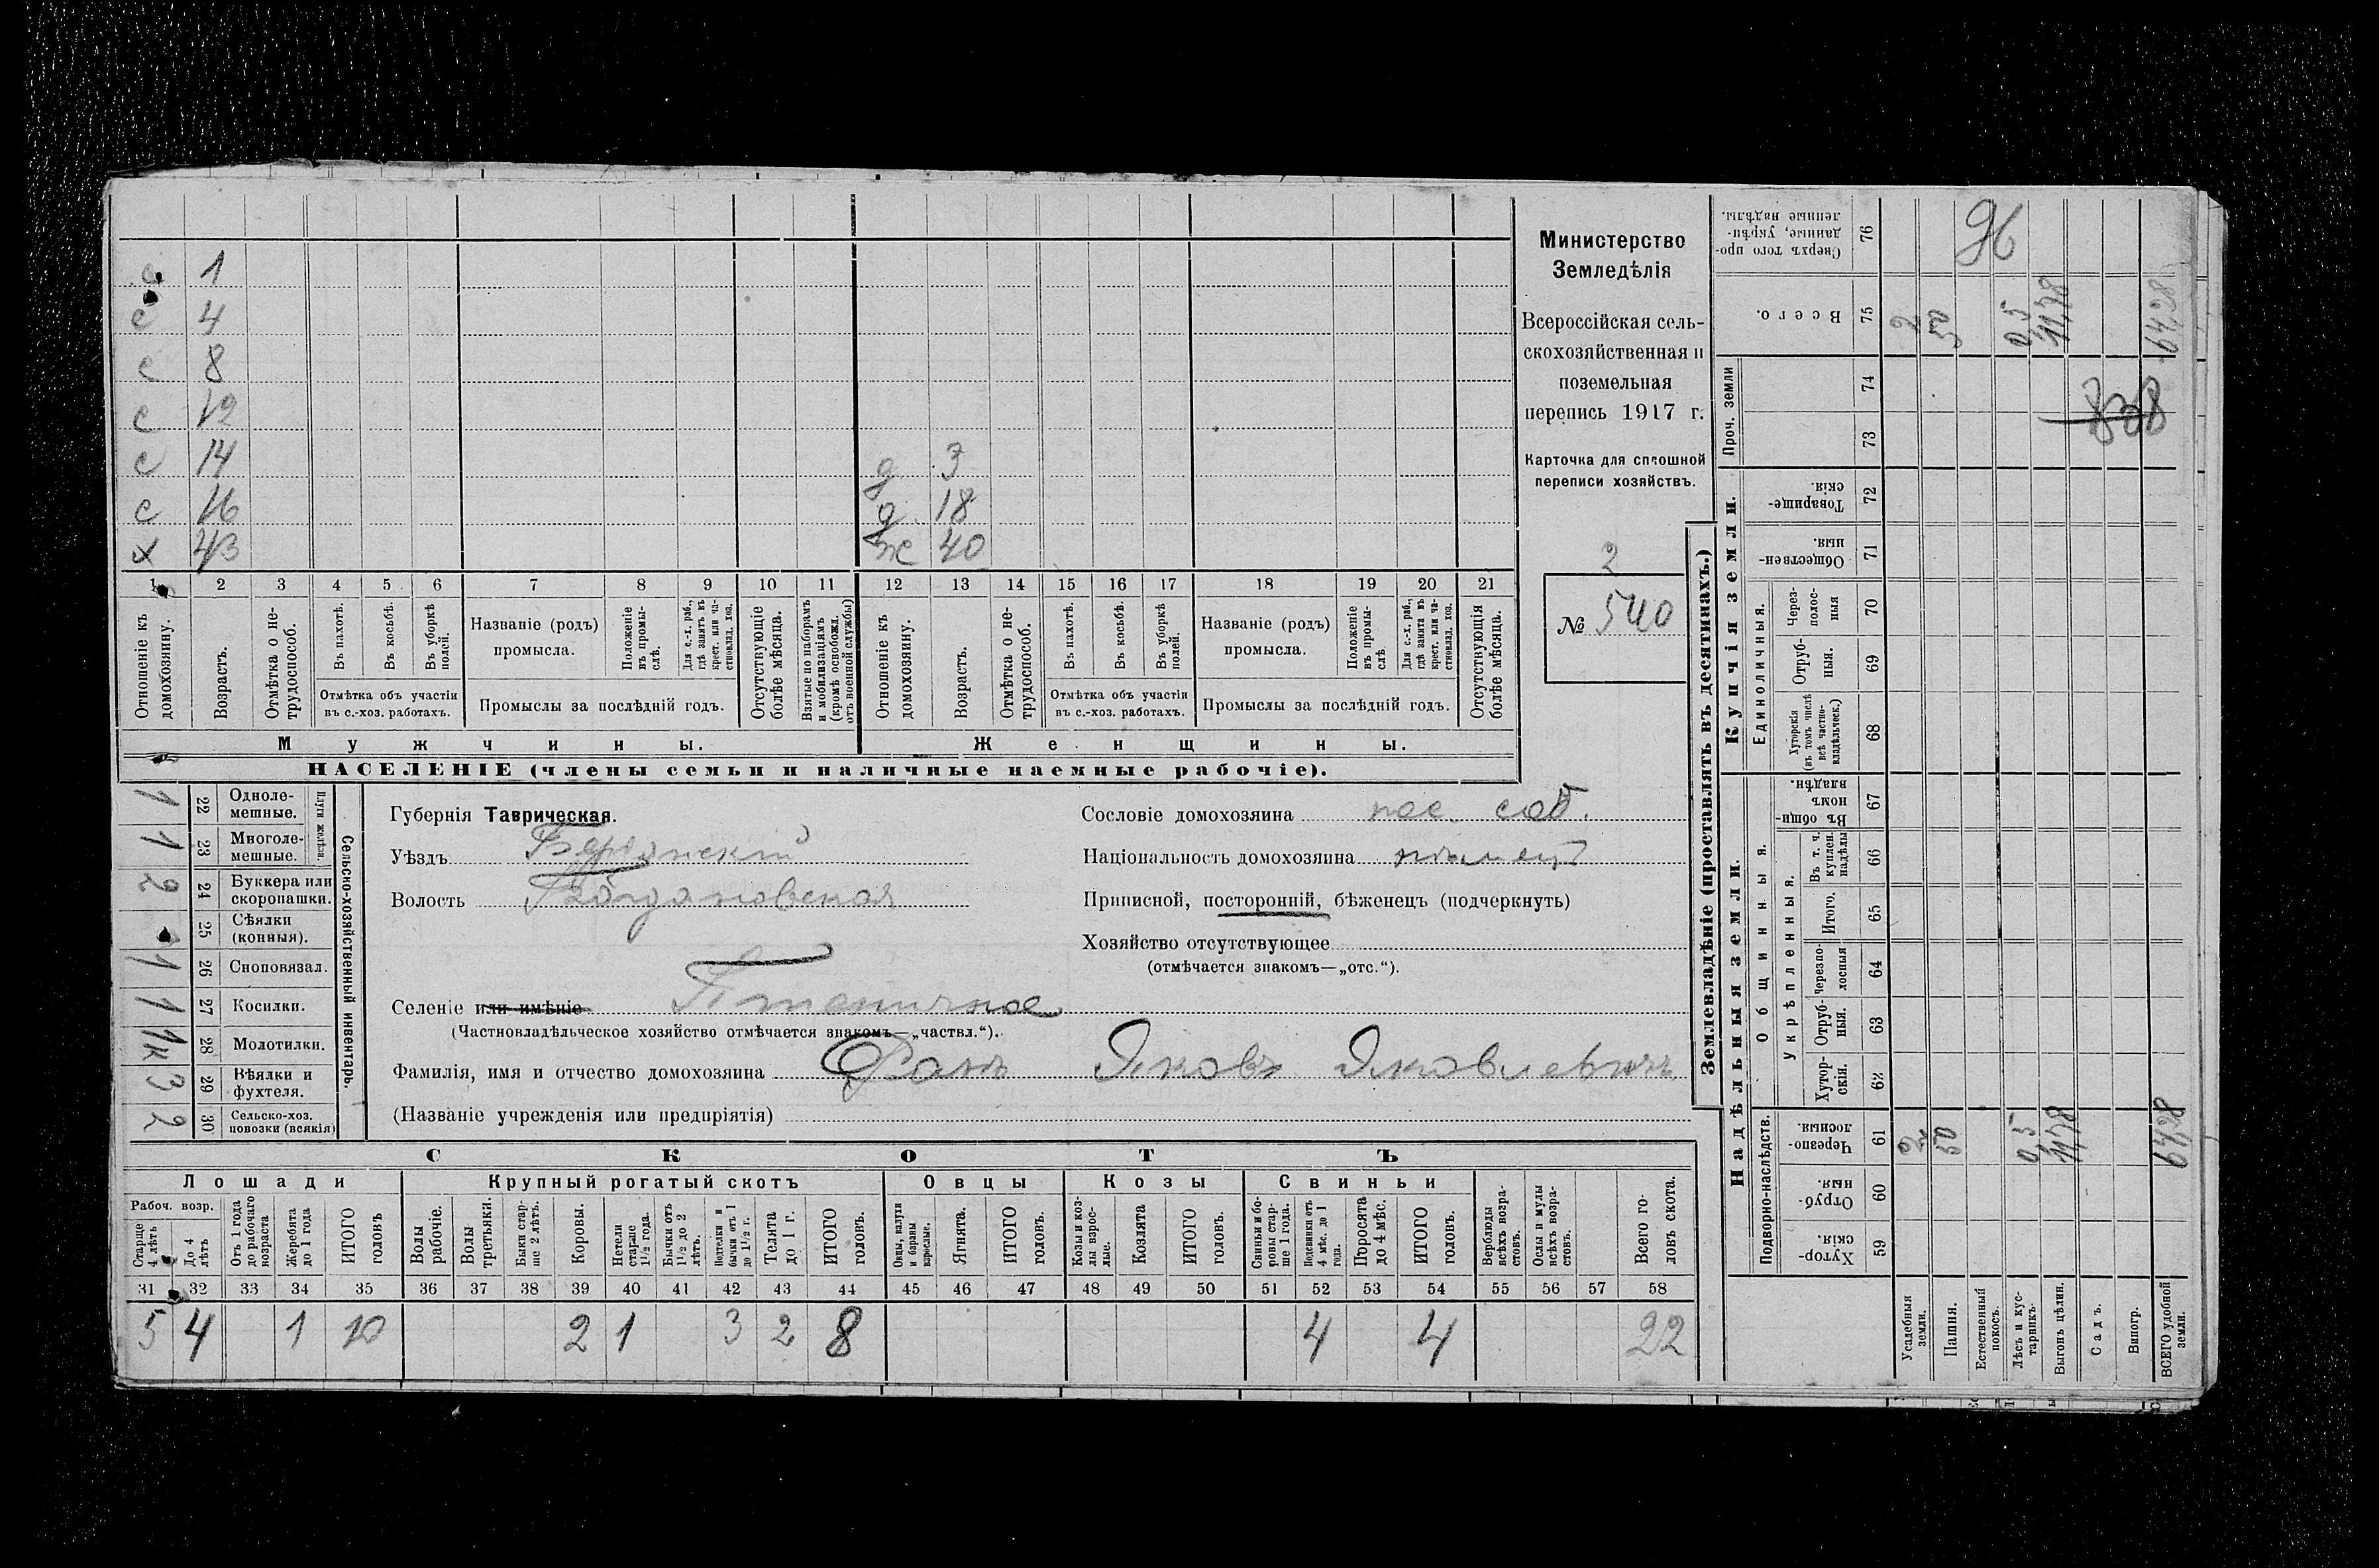 с 1
с 4
с 8
с 12
с 14
с 16
х 43
д 3
д 18
ж 40
1 2 3 4 5 6 7 8 9 10 11 12 13 14 15 16 17 18 19 20 21
Отношеніе къ домохозяину.
Возрастъ.
Отмѣтка о нетрудоспособ.
Въ пахотѣ.
Въ косьбѣ.
Въ уборкѣ полей.
Отмѣтка объ участіи
въ с.-хоз. работахъ.
Названіе (родъ)
промысла.
Положеніе въ промыслѣ.
Для с.-х. раб., гдѣ занятъ въ крест. или частновлад. хоз.
Промыслы за послѣдній годъ.
Отсутствующіе болѣе мѣсяца.
Взятые по наборамъ и мобилизаціямъ (кромѣ освобожд. отъ военной службы)
Отношеніе къ домохозяину.
Возрастъ.
Отмѣтка о нетрудоспособ.
Въ пахотѣ.
Въ косьбѣ.
Въ уборкѣ полей.
Отмѣтка объ участіи
въ с.-хоз. работахъ.
Названіе (родъ)
промысла.
Положеніе въ промыслѣ
Для с.-х. раб., гдѣ занята въ крест. или частновлад. хоз.
Промыслы за послѣдній годъ.
Отсутствующія болѣе мѣсяца.
Мужчины.
Женщины.
НАСЕЛЕНІЕ (члены семьи и наличные наемные рабочіе).
Министерство
Земледѣлія
Всероссійская сель-
скохозяйственная и
поземельная
перепись 1917 г.
Карточка для сплошной
переписи хозяйствъ.
2
№ 540
1 22 Одноле-
мешные.
1 23 Многоле-
мешные.
Плуги желѣзн.
2 24 Буккера или
скоропашки.
25 Сѣялки
(конныя).
1 26 Сноповязал.
1 27 Косилки.
1к 28 Молотилки.
3 29 Вѣялки и
фухтеля.
2 30 Сельско-хоз.
повозки (всякія)
Сельско-хозяйственный инвентарь.
Губернія Таврическая.
Уѣздъ Бердянскій
Волость Богдановская
Селеніе или имѣніе
(Частновладѣльческое хозяйство отмѣчается знакомъ—„частвл.“).
Фамилія, имя и отчество домохозяина Фанъ Яковъ Яковлевичъ
(Названіе учрежденія или предпріятія)
Сословіе домохозяина пос. соб.
Національность домохозяина нѣмецъ
Приписной, посторонній, бѣженецъ (подчеркнуть)
Хозяйство отсутствующее
(отмѣчается знакомъ—„отс.“).
СКОТЪ
Лошади
Крупный рогатый скотъ
Овцы
Козы
Свиньи
Рабоч. возр.
Старше 4 лѣтъ
До 4 лѣтъ
Отъ 1 года до рабочаго возраста
Жеребята до 1 года
ИТОГО головъ
Волы рабочіе.
Волы третьяки.
Быки старше 2 лѣтъ.
Коровы.
Нетели старше 1½ года.
Бычки отъ 1½ до 2 лѣтъ.
Подтелки и бычки отъ 1 до 1½ г.
Телята до 1 г.
ИТОГО головъ.
Овцы, валухи и бараны взрослые.
Ягнята.
ИТОГО головъ.
Козы и козлы взрослые.
Козлята
ИТОГО головъ.
Свиньи и боровы старше 1 года.
Подсвинки отъ 4 мѣс. до 1 года.
Поросята до 4 мѣс.
ИТОГО головъ.
Верблюды всѣхъ возрастовъ.
Ослы и мулы всѣхъ возрастовъ.
Всего головъ скота.
31 32 33 34 35 36 37 38 39 40 41 42 43 44 45 46 47 48 49 50 51 52 53 54 55 56 57 58
5 4 1 10 2 1 3 2 8 4 4 22
Землевладѣніе (проставлять въ десятинахъ.)
Надѣльныя земли.
Купчія земли.
Проч. земли
Сверхъ того проданные, укрѣпленные надѣлы. 76 96
Всего. 75 2 50 0,5 11,78 64,28
74
73
Товарищескія. 72
Общественныя. 71
Единоличныя.
Черезполосныя 70
Отрубныя. 69
Хуторскія (въ томъ числѣ всѣ частновладѣльческ.) 68
Общинныя.
Въ общинномъ владѣн. 67
Укрѣпленныя.
Въ т. ч. куплен. надѣлы 66
Итого. 65
Черезполосныя 64
Отрубныя. 63
Хуторскія. 62
Подворно-наслѣдств.
Черезполосныя. 61 2 50 0,5 11,78 64,28
Отрубныя. 60
Хуторскія. 59
Усадебныя земли.
Пашня.
Естественный покосъ.
Лѣсъ и кустарникъ.
Выгонъ цѣлин.
Садъ.
Виногр.
ВСЕГО удобной земли.